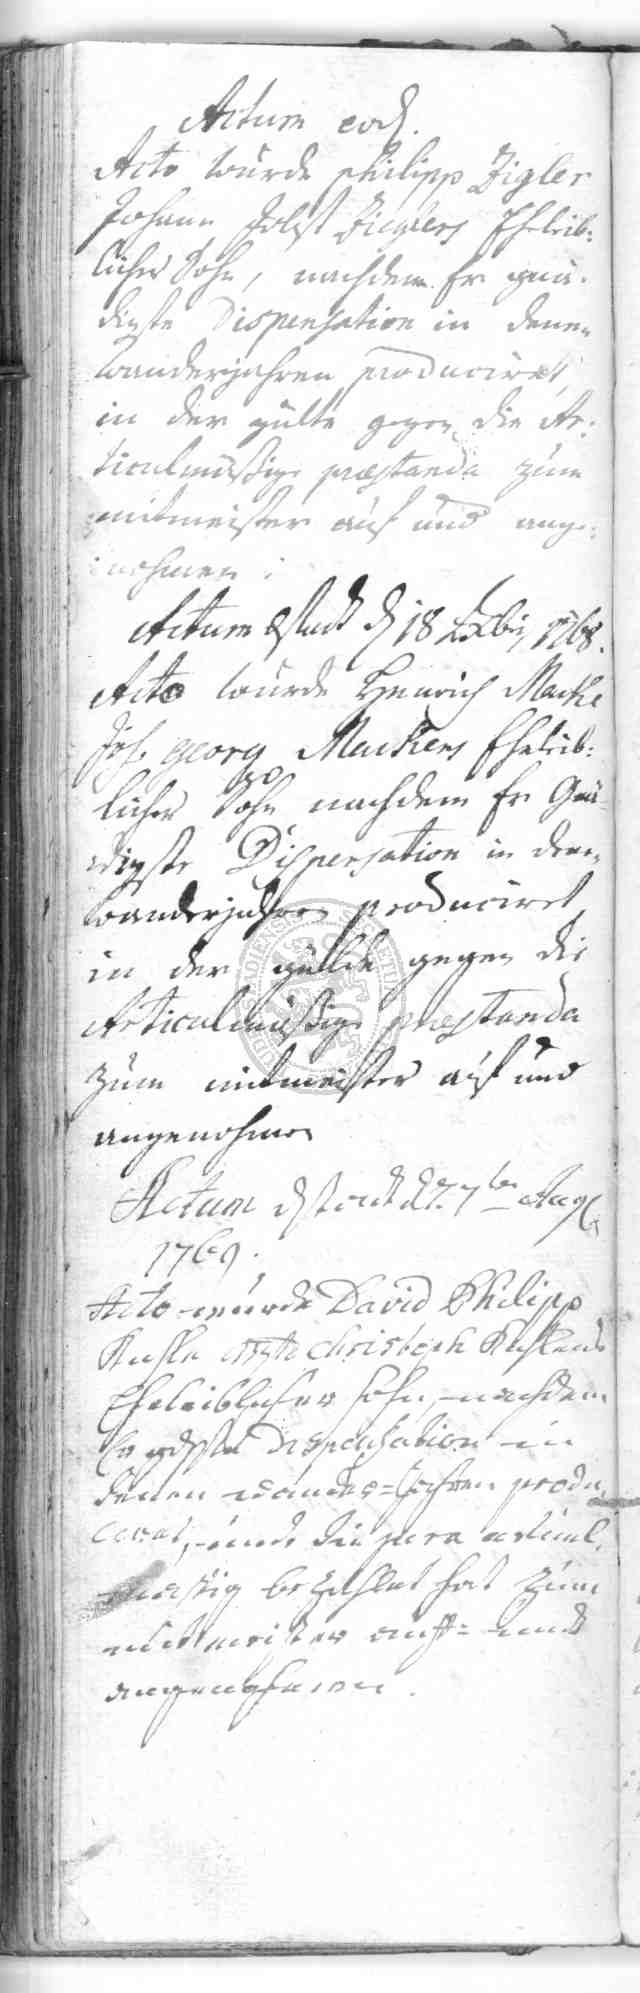 Actum eod.
Acto wurde philipp Zigler
Johann Jobst Ziglers Eheleib:
licher Sohn, nachdem Er gnä:
digste Dispensation in denen
wanderjahren produciret,
in der gülte gegen die Ar:
ticulmäßige præstanda zum
mitmeister auf und ange:
nohmen
Actum den 18 Xbr, 1768.
Acto wurde Henrich Macke
Joh. georg Mackens Eheleib:
licher Sohn nachdem Er Gnä:
digste Dispensation in denen
wanderjahren produciret
in der gülde gegen die
Articulmäßige præstanda
zum mitmeister auf und
angenohmen
Actum d. 7ten Aug
1769.
Acto wurde David Philipp
Christoph
Eheleiblicher sohn, nachdem
Er gdste Dispensation in
denen wander=Jahren produ,
ciret, und die jura articul,
mäsig bezahlet hat zum
mitmeister auff= und
angenohmen.